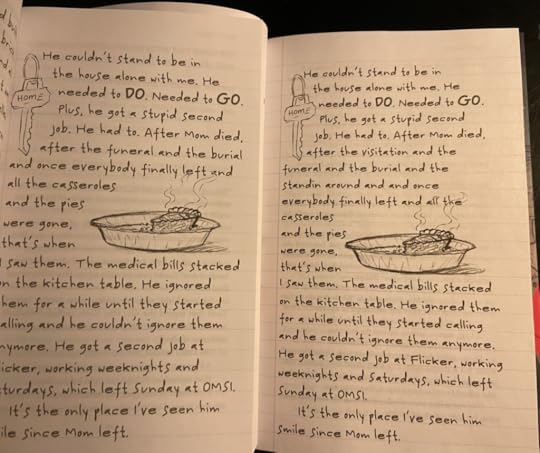 HOME
He couldn't stand to be in
the house alone with me. He
needed to DO. Needed to GO.
Plus, he got a stupid second
job. He had to. After Mom died,
after the funeral and the burial
and once everybody finally left and
all the casseroles
and the pies
were gone,
that's when
I saw them. The medical bills stacked
on the kitchen table. He ignored
them for a while until they started
calling and he couldn't ignore them
anymore. He got a second job at
Flicker, working weeknights and
Saturdays, which left Sunday at OMSI.
It's the only place I've seen him
smile since Mom left.
HOME
He couldn't stand to be in
the house alone with me. He
needed to DO. Needed to GO.
Plus, he got a stupid second
job. He had to. After Mom died,
after the visitation and the
funeral and the burial and the
standin around and and once
everybody finally left and all the
casseroles
and the pies
were gone,
that's when
I saw them. The medical bills stacked
on the kitchen table. He ignored them
for a while until they started calling
and he couldn't ignore them anymore.
He got a second job at Flicker, working
weeknights and Saturdays, which left
Sunday at OMSI.
It's the only place I've seen him
smile since Mom left.